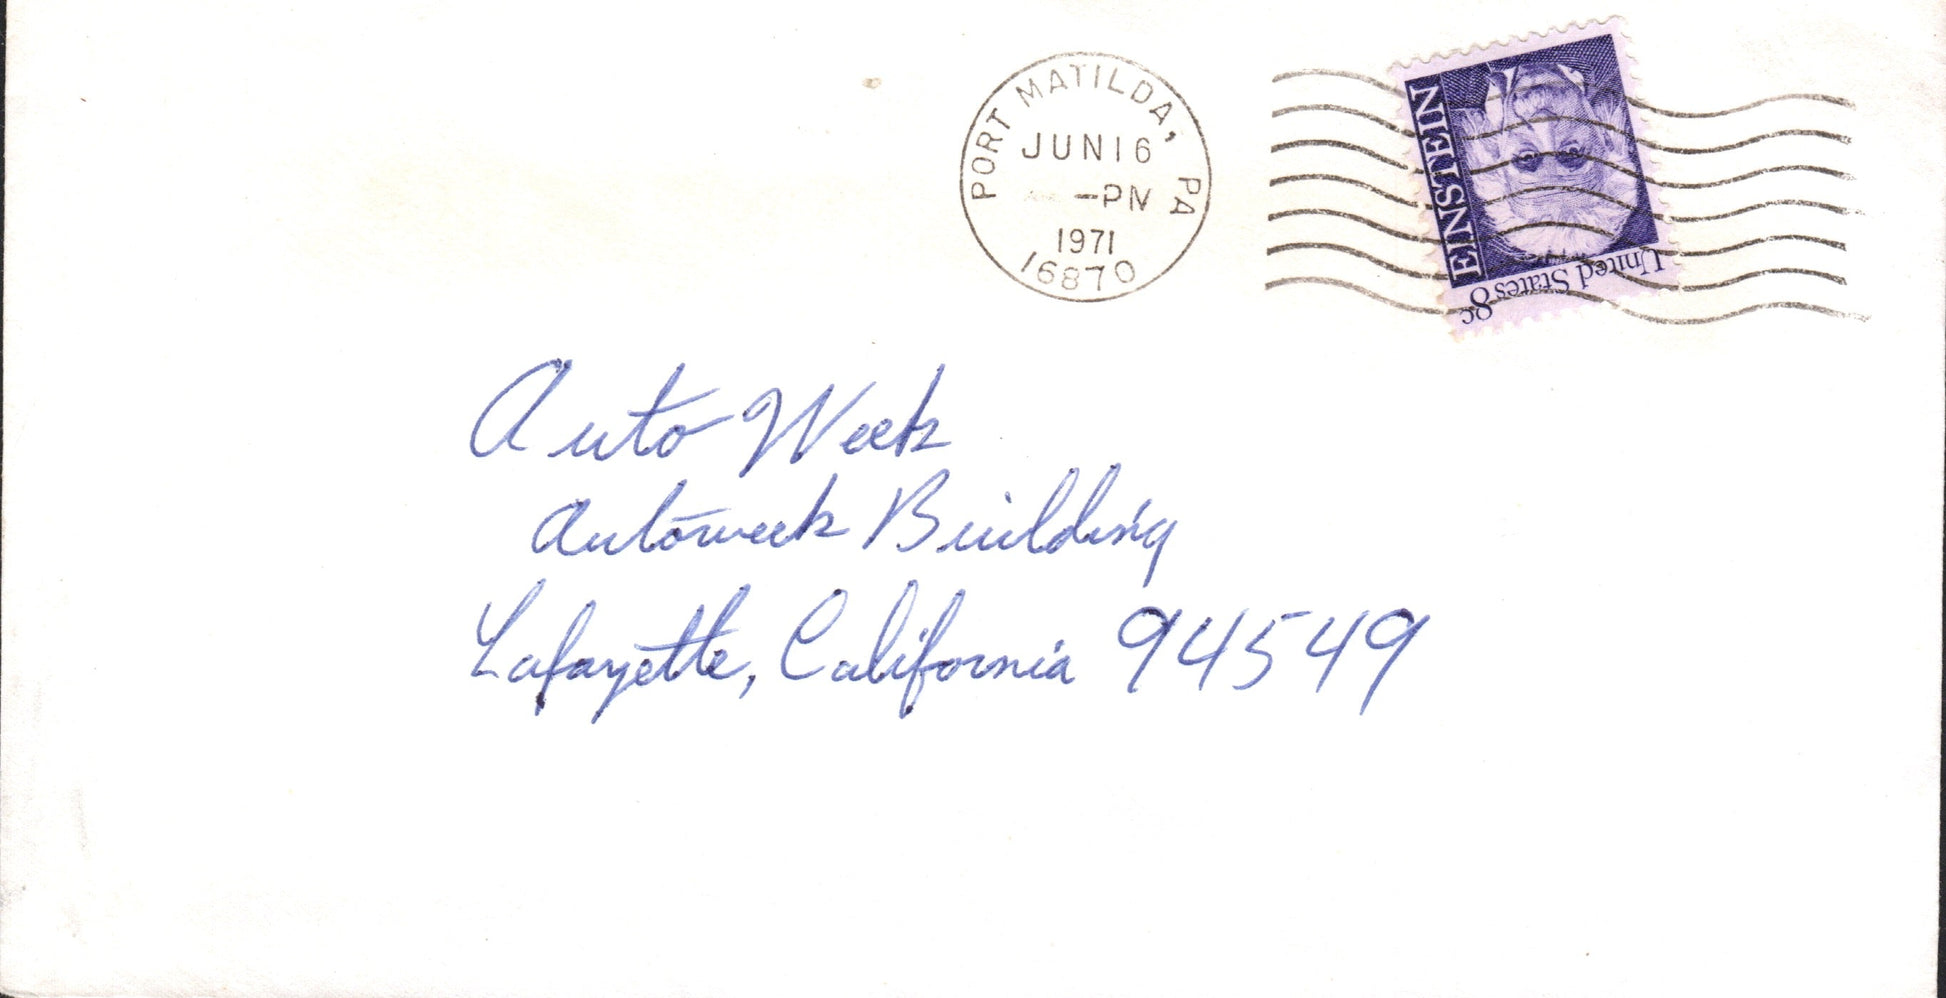 PORT MATILDA, PA
JUN 16
-PM
1971
16870
EINSTEIN
United States 8c
Auto Week
Autoweek Building
Lafayette, California 94549